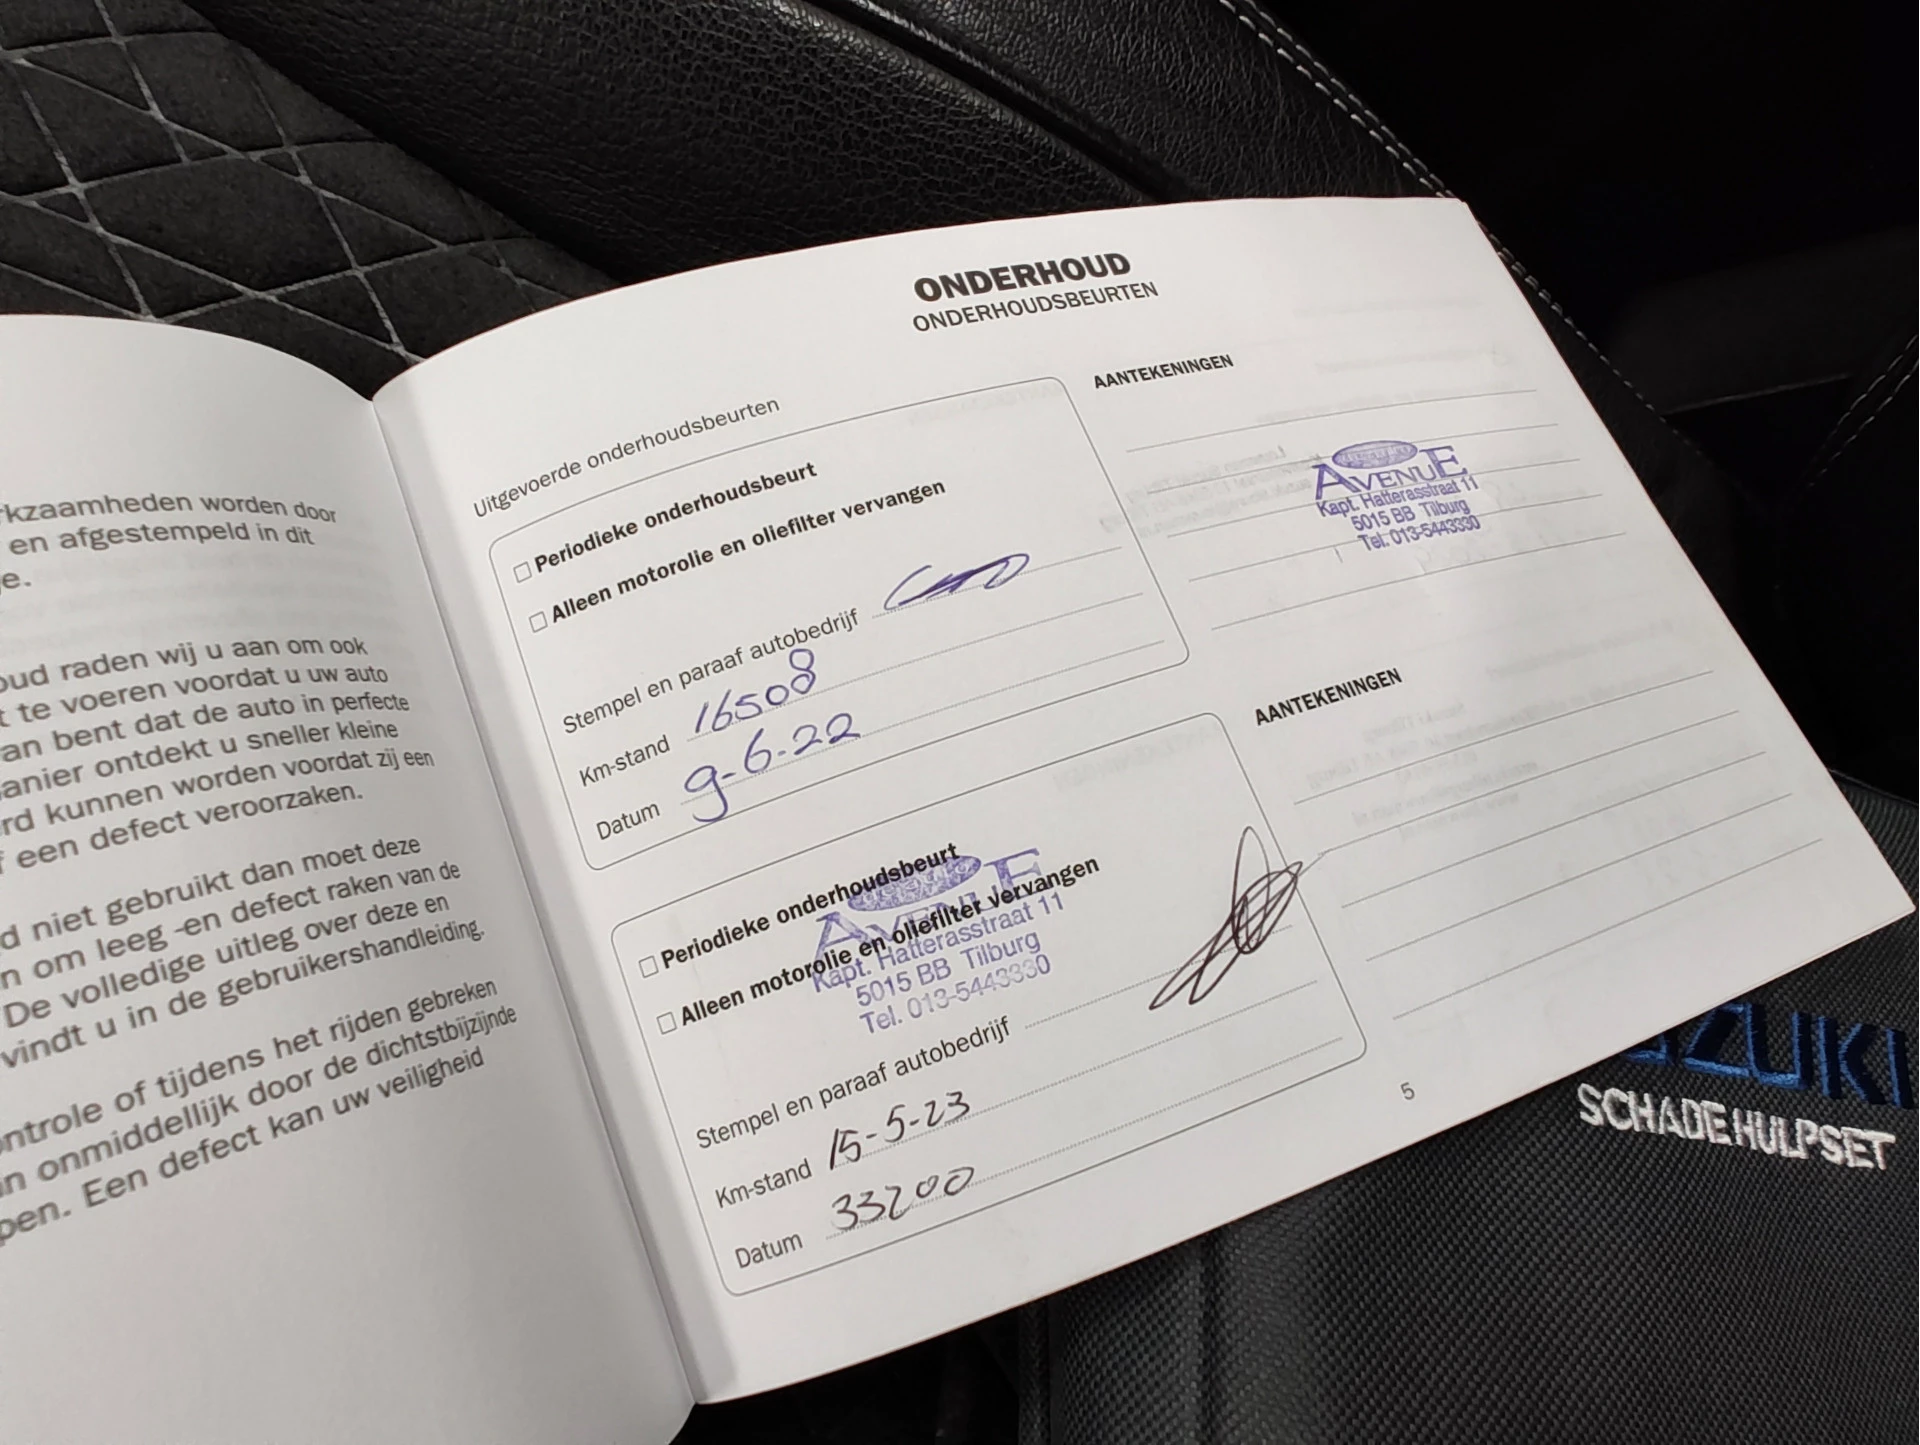 rkzaamheden worden door
en afgestempeld in dit
e.
oud raden wij u aan om ook
t te voeren voordat u uw auto
an bent dat de auto in perfecte
anier ontdekt u sneller kleine
rd kunnen worden voordat zij een
f een defect veroorzaken.
d niet gebruikt dan moet deze
n om leeg -en defect raken van de
De volledige uitleg over deze en
vindt u in de gebruikershandleiding.
ontrole of tijdens het rijden gebreken
n onmiddellijk door de dichtstbijzijnde
pen. Een defect kan uw veiligheid
ONDERHOUD
ONDERHOUDSBEURTEN
Uitgevoerde onderhoudsbeurten
Periodieke onderhoudsbeurt
Alleen motorolie en oliefilter vervangen
Stempel en paraaf autobedrijf
Km-stand 16508
Datum 9-6-22
AANTEKENINGEN
AVENUE
Kapt. Hatterasstraat 11
5015 BB Tilburg
Tel. 013-5443330
Periodieke onderhoudsbeurt
Alleen motorolie en oliefilter vervangen
AVENUE
Kapt. Hatterasstraat 11
5015 BB Tilburg
Tel. 013-5443330
Stempel en paraaf autobedrijf
Km-stand 15-5-23
Datum 33200
AANTEKENINGEN
5
UZUKI
SCHADEHULPSET